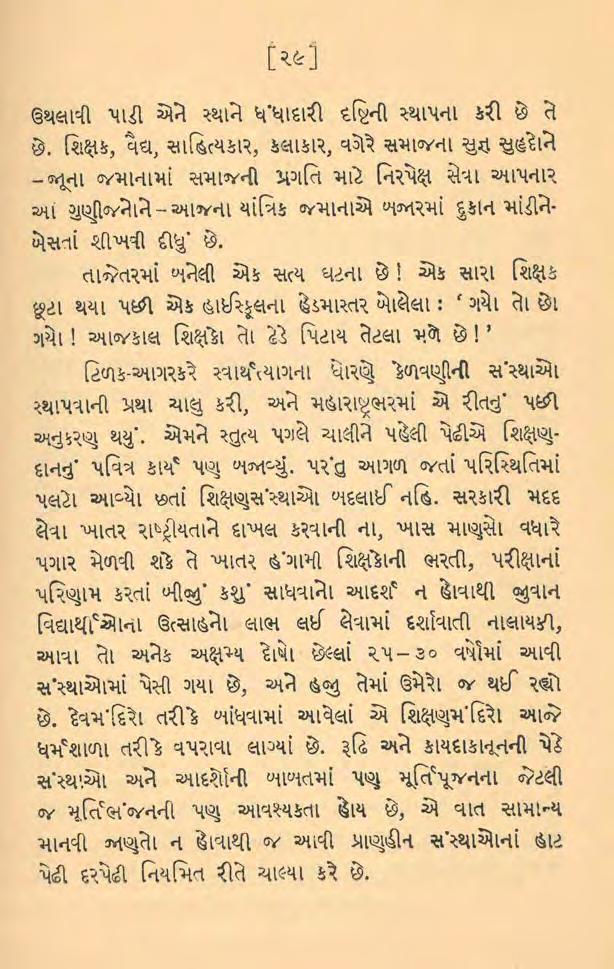 [૨૯]
ઉથલાવી પાડી એને સ્થાને ધંધાદારી દૃષ્ટિની સ્થાપના કરી છે તે
છે. શિક્ષક, વૈદ્ય, સાહિત્યકાર, કલાકાર, વગેરે સમાજના સુજ્ઞ સુહૃદોને
–જૂના જમાનામાં સમાજની પ્રગતિ માટે નિરપેક્ષ સેવા આપનાર
આ ગુણીજનોને–આજના યાંત્રિક જમાનાએ બજારમાં દુકાન માંડીને-
બેસતાં શીખવી દીધું છે.
તાજેતરમાં બનેલી એક સત્ય ઘટના છે! એક સારા શિક્ષક
છૂટા થયા પછી એક હાઈસ્કૂલના હેડમાસ્તર બોલેલા : ‘ ગયો તો છો
ગયો! આજકાલ શિક્ષકો તો ઢેડે પિટાય તેટલા મળે છે!’
ટિળક-આગરકરે સ્વાર્થત્યાગના ધોરણે કેળવણીની સંસ્થાઓ
સ્થાપવાની પ્રથા ચાલુ કરી, અને મહારાષ્ટ્રભરમાં એ રીતનું પછી
અનુકરણ થયું. એમને સ્તુત્ય પગલે ચાલીને પહેલી પેઢીએ શિક્ષણ-
દાનનું પવિત્ર કાર્ય પણ બજાવ્યું. પરંતુ આગળ જતાં પરિસ્થિતિમાં
પલટો આવ્યો છતાં શિક્ષણસંસ્થાઓ બદલાઈ નહિ. સરકારી મદદ
લેવા ખાતર રાષ્ટ્રીયતાને દાખલ કરવાની ના, ખાસ માણસો વધારે
પગાર મેળવી શકે તે ખાતર હંગામી શિક્ષકોની ભરતી, પરીક્ષાનાં
પરિણામ કરતાં બીજું કશું સાધવાનો આદર્શ ન હોવાથી જુવાન
વિદ્યાર્થીઓના ઉત્સાહનો લાભ લઈ લેવામાં દર્શાવાતી નાલાયકી,
આવા તો અનેક અક્ષમ્ય દોષો છેલ્લાં ૨૫–૩૦ વર્ષોમાં આવી
સંસ્થાઓમાં પેસી ગયા છે, અને હજી તેમાં ઉમેરો જ થઈ રહ્યો
છે. દેવમંદિરો તરીકે બાંધવામાં આવેલાં એ શિક્ષણમંદિરો આજે
ધર્મશાળા તરીકે વપરાવા લાગ્યાં છે. રૂઢિ અને કાયદાકાનૂનની પેઠે
સંસ્થાઓ અને આદર્શોની બાબતમાં પણ મૂર્તિપૂજનના જેટલી
જ મૂર્તિભંજનની પણ આવશ્યકતા હોય છે, એ વાત સામાન્ય
માનવી જાણતો ન હોવાથી જ આવી પ્રાણહીન સંસ્થાઓનાં હાટ
પેઢી દરપેઢી નિયમિત રીતે ચાલ્યા કરે છે.